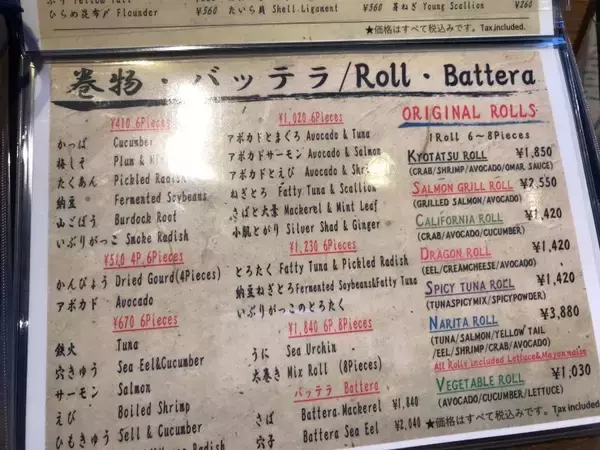 ひらめ昆布〆 Flounder ¥560 たいら貝 Shell Ligament ¥360 芽ねぎ Young Scallion ¥260
★価格はすべて税込みです。Tax included.
巻物・バッテラ/Roll・Battera
¥410 6Pieces
かっぱ Cucumber
梅しそ Plum &
たくあん Pickled Radish
納豆 Fermented Soybeans
山ごぼう Burdock Root
いぶりがっこ Smoke Radish
¥510 4P,6Pieces
かんぴょう Dried Gourd(4Pieces)
アボカド Avocado
¥670 6Pieces
鉄火 Tuna
穴きゅう Sea Eel&Cucumber
サーモン Salmon
えび Boiled Shrimp
ひもきゅう Sell & Cucumber
Radish
¥1,020 6Pieces
アボカドとまぐろ Avocado & Tuna
アボカドサーモン Avocado & Salmon
アボカドとえび Avocado & Shrimp
ねぎとろ Fatty Tuna & Scallion
さばと大葉 Mackerel & Mint Leaf
小肌とがり Silver Shad & Ginger
¥1,230 6Pieces
とろたく Fatty Tuna & Pickled Radish
納豆ねぎとろ Fermented Soybeans&Fatty Tuna
いぶりがっこのとろたく
¥1,840 6P,8Pieces
うに Sea Urchin
太巻き Mix Roll (8Pieces)
バッテラ Battera
さば Battera Mackerel ¥1,840
穴子 Battera Sea Eel ¥2,040
ORIGINAL ROLLS
1Roll 6~8Pieces
KYOTATSU ROLL ¥1,850
(CRAB/SHRIMP/AVOCADO/OMAR SAUCE)
SALMON GRILL ROLL ¥2,550
(GRILLED SALMON/AVOCADO)
CALIFORNIA ROLL ¥1,420
(CRAB/AVOCADO/CUCUMBER)
DRAGON ROLL ¥1,420
(EEL/CREAMCHEESE/AVOCADO)
SPICY TUNA ROLL ¥1,420
(TUNASPICYMIX/SPICYPOWDER)
NARITA ROLL ¥3,880
(TUNA/SALMON/YELLOW TAIL
/EEL/SHRIMP/CRAB/AVOCADO)
All Rolls included Lettuce&Mayonnaise
VEGETABLE ROLL ¥1,030
(AVOCADO/CUCUMBER/LETTUCE)
★価格はすべて税込みです。Tax included